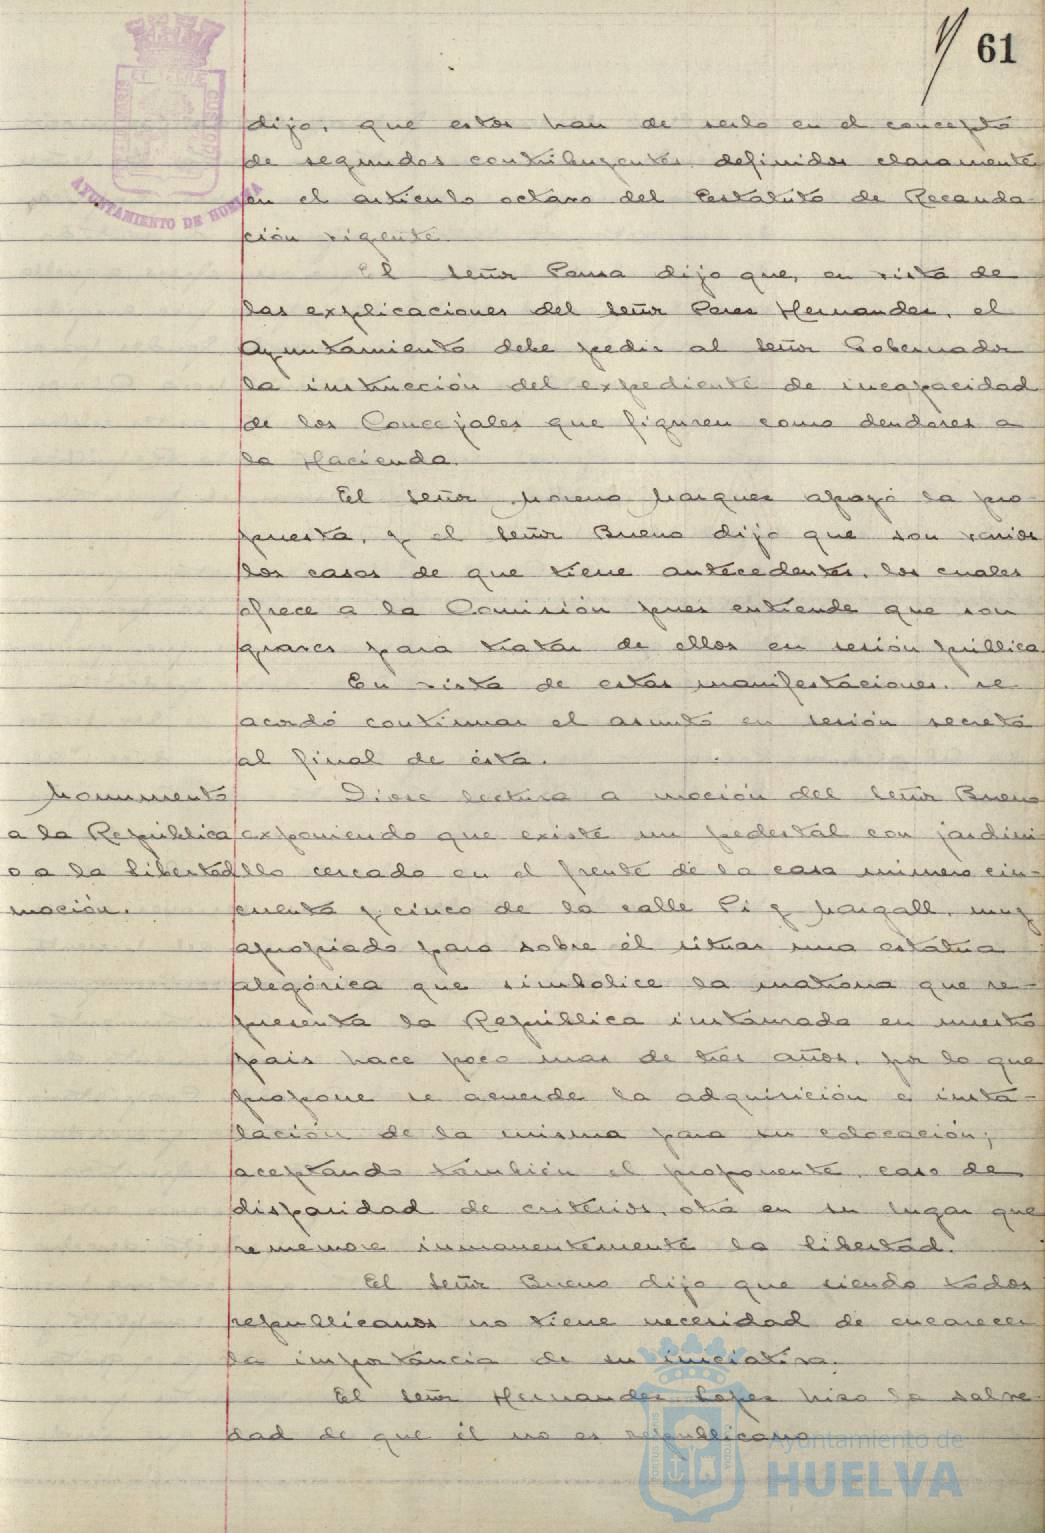 61
AYUNTAMIENTO DE HUELVA
dijo, que estos han de serlo en el concepto
de segundos contribuyentes, definidos claramente
en el artículo octavo del Estatuto de Recauda-
ción vigente.
El señor Pousa dijo que, en vista de
las explicaciones del señor Peres Hernandes, el
Ayuntamiento debe pedir al señor Gobernador
la instrucción del expediente de incapacidad
de los Concejales que figuren como deudores a
la Hacienda.
El señor Moreno Marques apoyó la pro
puesta, y el señor Bueno dijo que son varios
los casos de que tiene antecedentes, los cuales
ofrece a la Comisión pues entiende que son
graves para tratar de ellos en sesión pública.
En vista de estas manifestaciones, se
acordó continuar el asunto en sesión secreta
al final de ésta.
Monumento
a la República
o a la Libertad
moción.
Diose lectura a moción del señor Bueno
exponiendo que existe un pedestal con jardini
llo cercado en el frente de la casa número cin-
cuenta y cinco de la calle Pi y Margall, muy
apropiado para sobre él situar una estatua
alegórica que simbolice la matrona que re-
presenta la República instaurada en nuestro
pais hace poco mas de tres años, por lo que
propone se acuerde la adquisición e insta-
lación de la misma para su colocación;
aceptando también el proponente, caso de
disparidad de criterios, otra en su lugar que
rememore inmanentemente la libertad.
El señor Bueno dijo que siendo todos
republicanos no tiene necesidad de encarecer
la importancia de su iniciativa.
El señor Hernandes Lopes hizo la salve-
dad de que él no es republicano
Ayuntamiento de
HUELVA